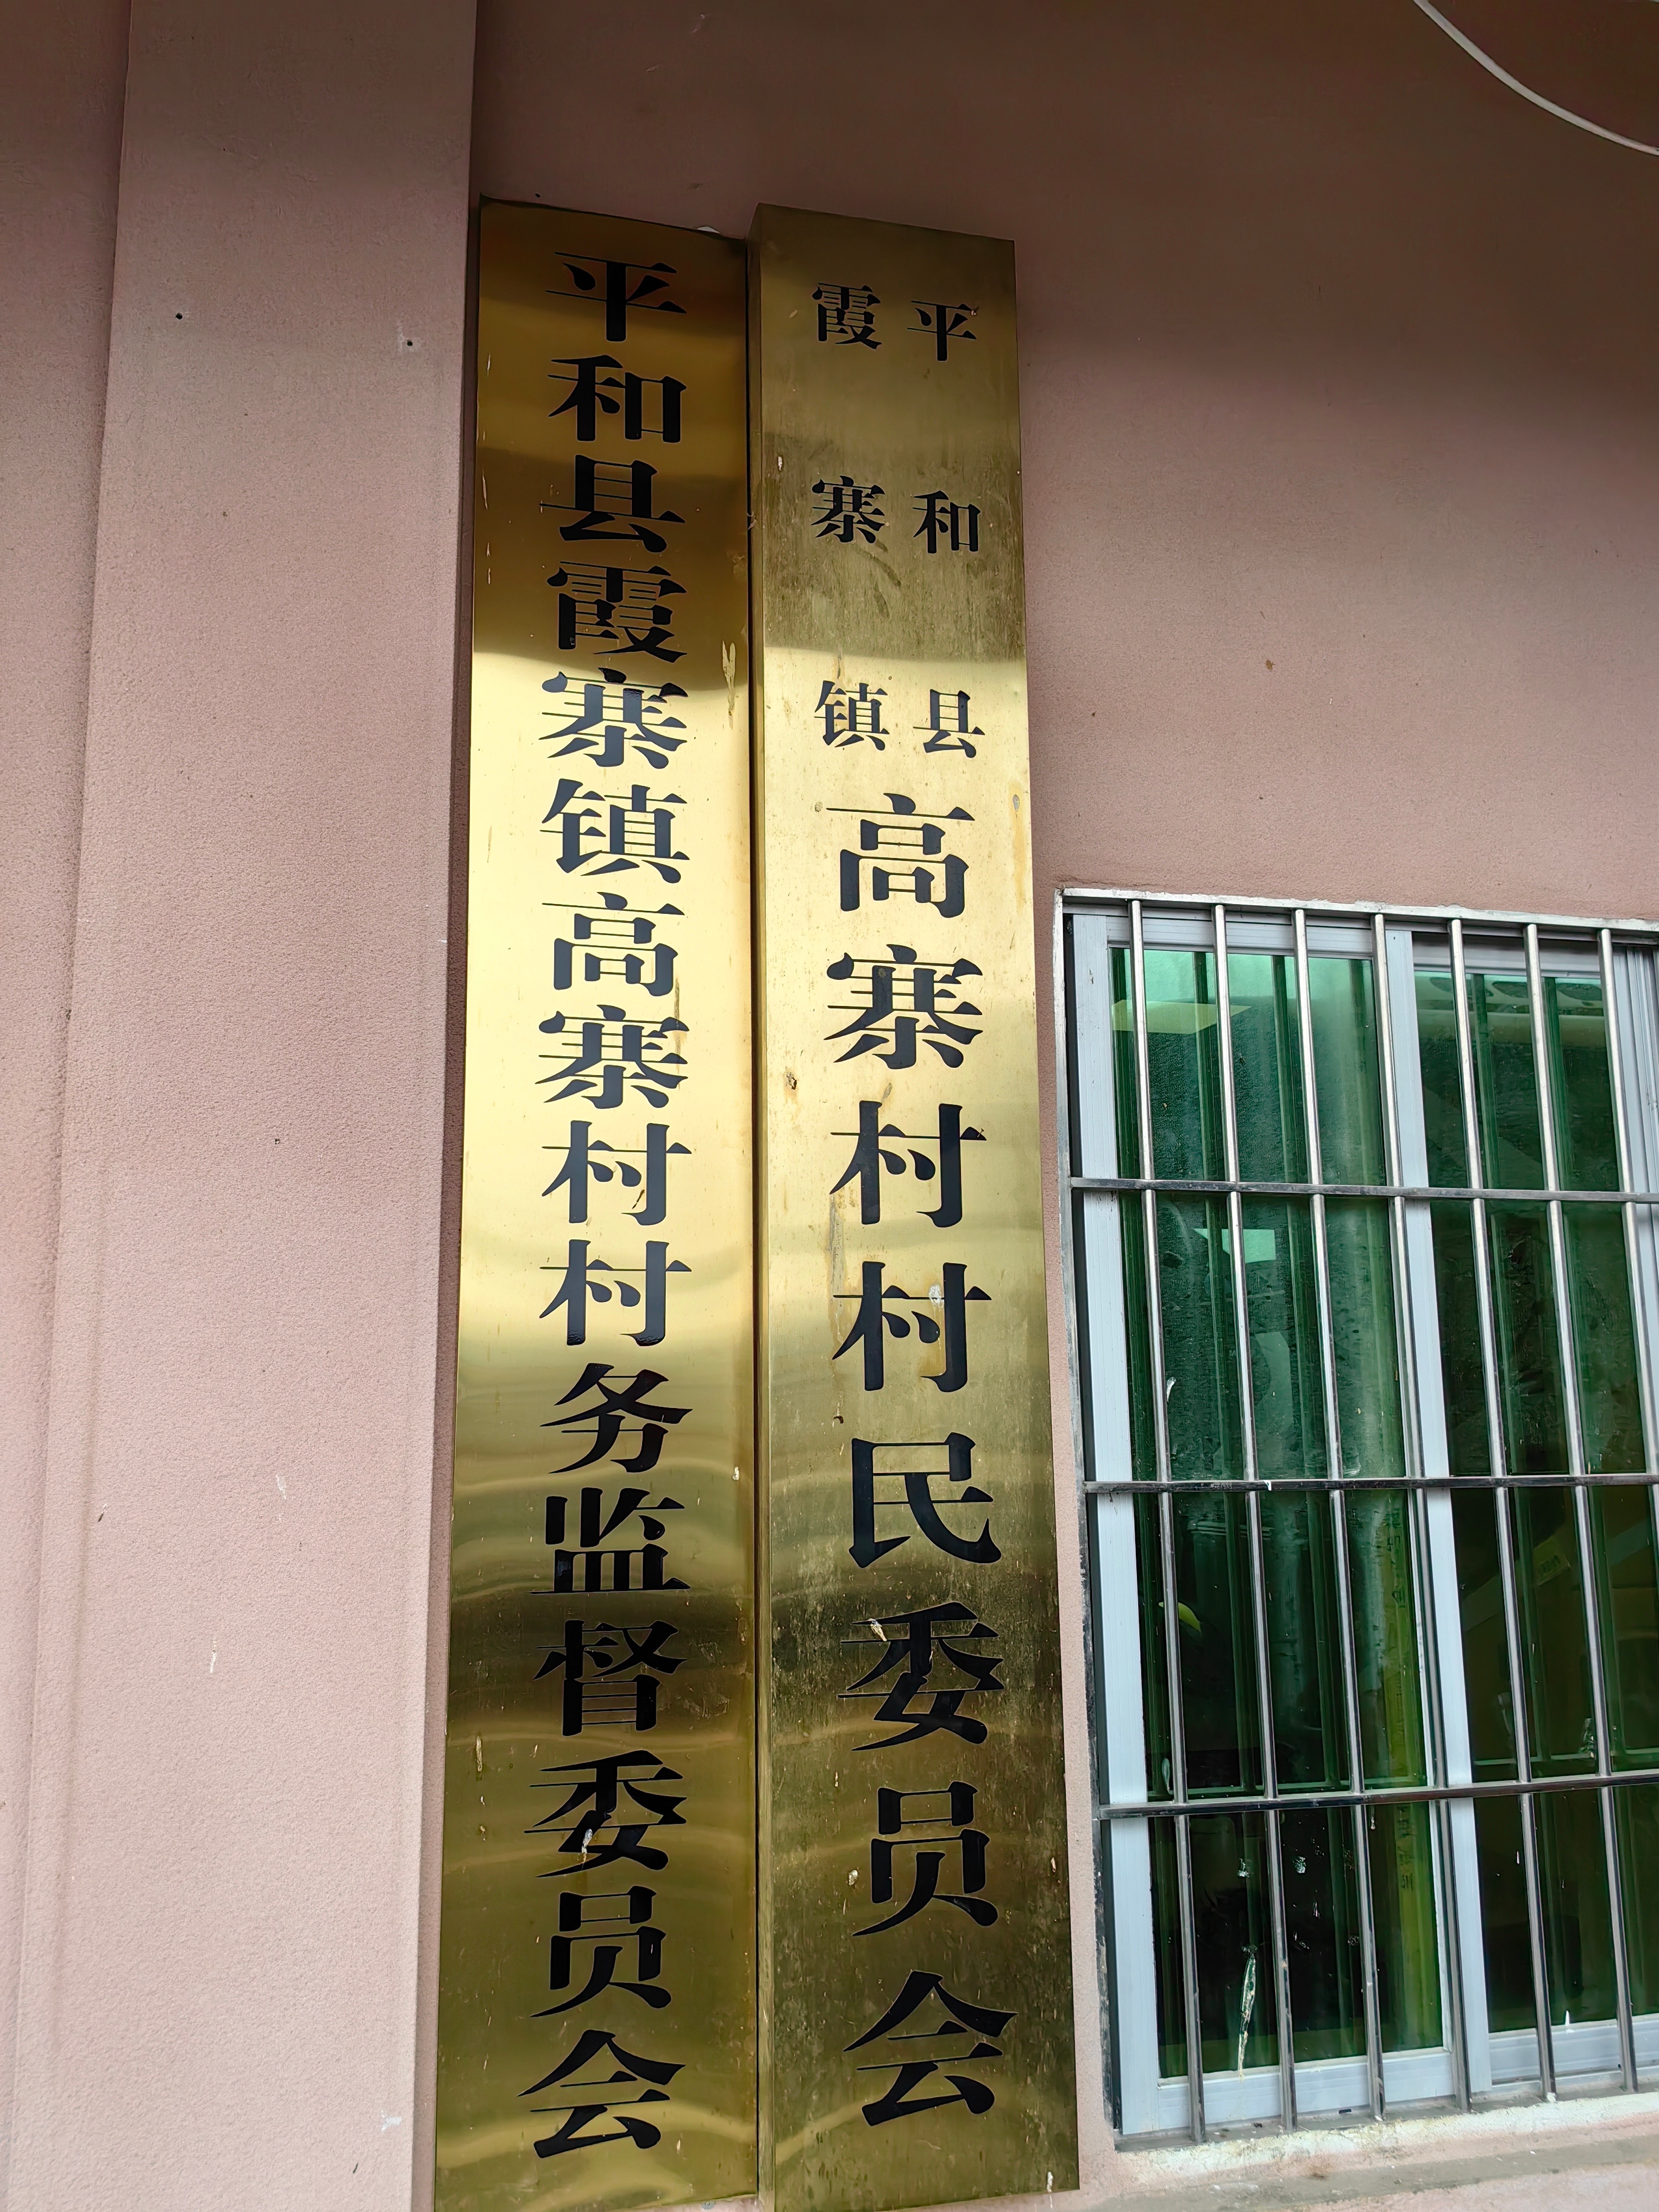 平和县霞寨镇高寨村村务监督委员会
平和县
霞寨镇
高寨村村民委员会